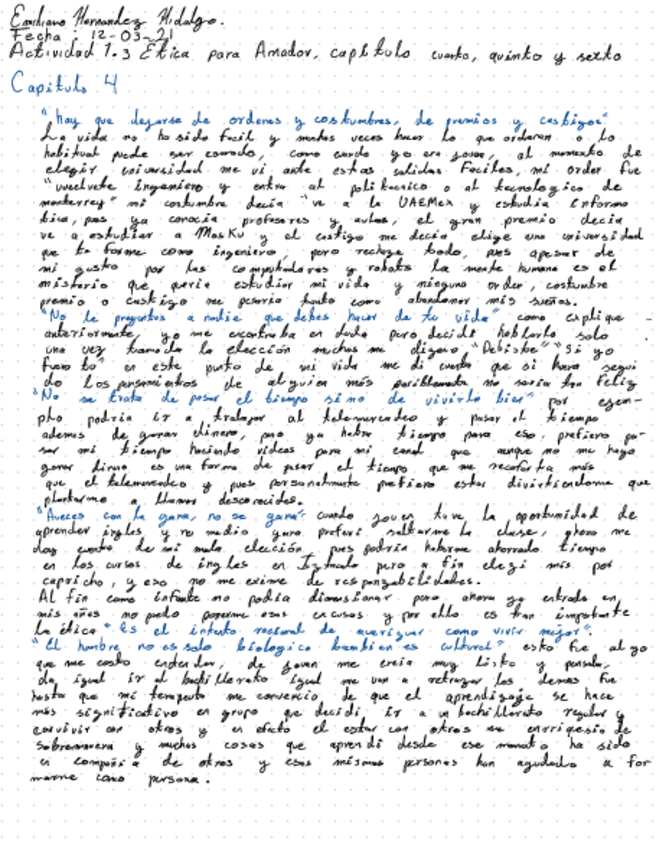 Emiliano Hernandez Hidalgo.
Fecha : 12-03-21
Actividad 1.3 Ética para Amador, capitulo cuarto, quinto y sexto
Capitulo 4
"hay que dejarse de ordenes y costumbres, de premios y castigos"
La vida no ha sido facil y muchas veces hacer lo que ordenan o lo
habitual puede ser comodo, como cuando yo era joven, al momento de
elegir universidad me vi ante estas salidas faciles, mi orden fue
"vuelvete ingeniero y entra al politecnico o al tecnologico de
monterrey" mi costumbre decia "ve a la UAEMex y estudia informa
tica, pues ya conocia profesores y aulas, el gran premio decia
ve a estudiar a Moskú y el castigo me decia elige una universidad
que te forme como ingeniero, pero rechaze todo, pues apesar de
mi gusto por las computadoras y robots la mente humana es el
misterio que queria estudiar mi vida y ninguna orden, costumbre
premio o castigo me pesaria tanto como abandonar mis sueños.
"No le preguntes a nadie que debes hacer de tu vida" como explique
anteriormente, yo me encontraba en duda pero decidi hablarlo solo
una vez tomada la elección muchos me dijero "Debiste" "Si yo
fuera tu" en este punto de mi vida me di cuenta que si hara segui
do los pensamientos de alguien más posiblemente no seria tan feliz
"No se trata de pasar el tiempo sino de vivirlo bien" por ejem-
plo podria ir a trabajar al telemercadeo y pasar el tiempo
ademas de ganar dinero, pero ya habra tiempo para eso, prefiero pa-
sar mi tiempo haciendo videos para mi canal que aunque no me haga
ganar dinero es una forma de pasar el tiempo que me reconforta más
que el telemercadeo y pues personalmente prefiero estar divirtiendome que
plantarme a llamar desconocidos.
"Aveces con la gana, no se gana" cuando joven tuve la oportunidad de
aprender ingles y yo medio guno preferi saltarme la clase, ahora me
doy cuenta de mi mala elección pues podria haberme ahorrado tiempo
en los cursos de ingles en pero a fin elegi más por
capricho, y eso no me exime de responzabilidades.
Al fin como infante no podia dimensionar pero ahora ya entrado en
mis años no puedo ponerme esas excusas y por ello es tran importante
la ética "Es el intento racional de averiguar como vivir mejor".
"El hombre no es solo biologico tambien es cultural" esto fue algo
que me costo entender, de joven me creia muy listo y pensaba,
da igual ir al bachillerato igual me van a retrazar los demas fue
hasta que mi terapeuta me convencio de que el aprendizaje se hace
más significativo en grupo que decidi ir a un bachillerato regular y
convivir con otros y en efecto el estar con otros me enrriquesio de
sobremanera y muchas cosas que aprendi desde ese momento ha sido
en compañia de otros y esas mismas personas han ayudado a for
marme como persona.